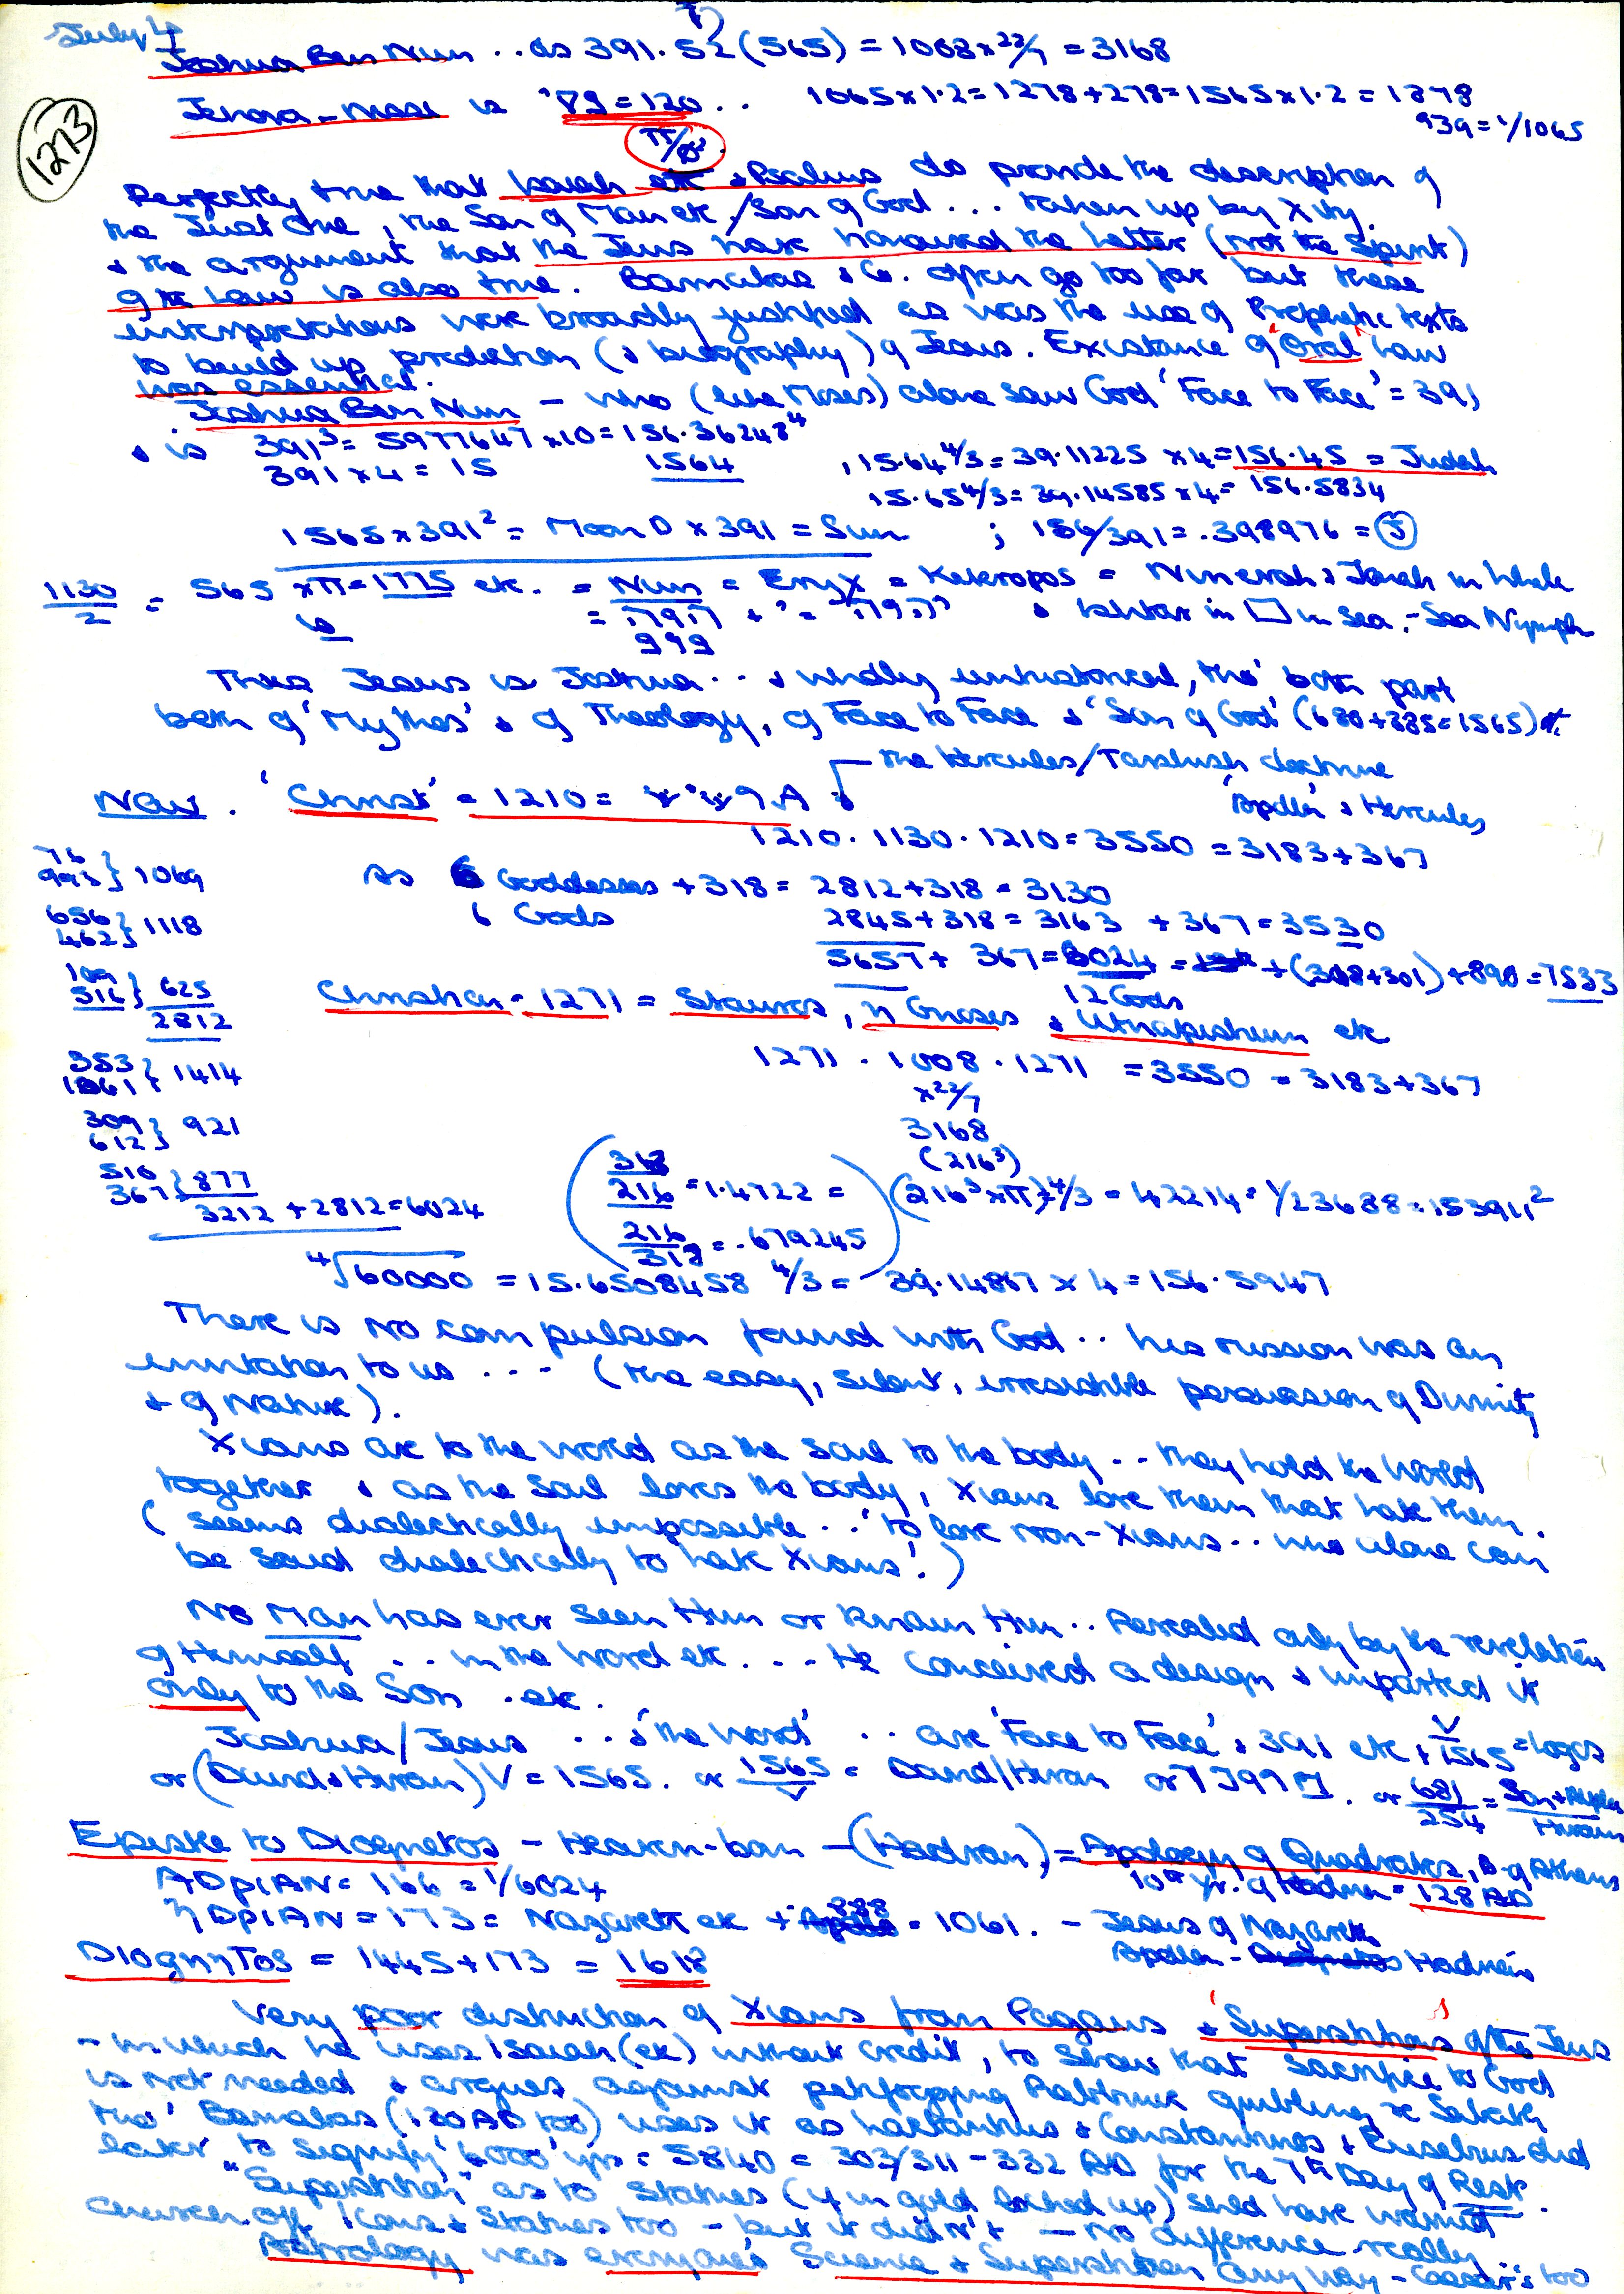 July 4
Joshua Ben Nun .. as 391. 52 (565) = 1008 x 22/7 = 3168
Jehova - is '89 = 120 .. 1065 x 1.2 = 1278 + 278 = 1565 x 1.2 = 1878
939 = 1/1065
1273
Perfectly true that Isaiah etc & Psalms do provide the description of
the Just One, the Son of Man etc / Son of God ... taken up by Xity.
& the argument that the Jews have honoured the Letter (not the Spirit)
of the Law is also true. Barnabas & Co. often go too far but these
interpretations were broadly justified as was the use of Prophetic texts
to build up prediction (& biography) of Jesus. Existance of 'Oral' Law
was essential.
Joshua Ben Nun - who (like Moses) alone saw God 'Face to Face' = 391
& is 391³ = 5977647 x 10 = 156.36248⁴
391 x 4 = 15 1564 , 15.64 4/3 = 39.11225 x 4 = 156.45 = Judah
15.65 4/3 = 39.14585 x 4 = 156.5834
1565 x 391² = Moon D x 391 = Sun ; 156/391 = .398976 = J
1130/2 = 565 x π = 1775 etc. = Nun = Eryx = Kekropos = Nineveh & Jonah in Whale
is 999 in Sea - Sea Nymph
Thus Jesus is Joshua .. & wholly unhistorical, tho' both part
both of 'Mythos' & of Theology, of Face to Face & 'Son of God' (680 + 885 = 1565) etc
the Hercules/Tarshish doctrine
Now. 'Christ' = 1210 =
'Apollo' & Hercules
1210 . 1130 . 1210 = 3550 = 3183 + 367
76
993 } 1069
As 6 Goddesses + 318 = 2812 + 318 = 3130
656
462 } 1118
6 Gods 2845 + 318 = 3163 + 367 = 3530
5657 + 367 = 6024 = + (308 + 301) + 890 = 7533
12 Gods
109
516 } 625
2812
Christian = 1271 = Stauros, η Gnosis & Utnapishtim etc
1271 . 1008 . 1271 = 3550 = 3183 + 367
x 22/7
3168
353
1061 } 1414
309
612 } 921
510
367 } 877
3212 + 2812 = 6024
(318/216 = 1.4722 =
216/318 = .679245)
(216³)
(216³ x π) 4/3 = 42214 = 1/23688 = 153911²
⁴√60000 = 15.6508458 4/3 = 39.14867 x 4 = 156.5947
There is no compulsion found with God .. his mission was an
invitation to us ... (the easy, silent, irresistible persuasion of Divinity
& of Nature).
Xians are to the world as the Soul to the body .. they hold the World
together & as the Soul loves the body, Xians love them that hate them.
(seems dialectically impossible .. 'to love non-Xians .. who alone can
be said dialectically to hate Xians'!)
No Man has ever seen Him or known Him .. Revealed only by the revelation
of Himself .. in the Word etc ... He conceived a design & imparted it
only to the Son . etc.
Joshua/Jesus .. & 'the Word' .. are 'Face to Face' & 391 etc + 1565 = Logos
or (David & Hiram) V = 1565. or 1565/V = David/Hiram or . or 681/254 =
Hiram
Epistle to Diognetos - Heaven-born - (Hadrian) = Apology of Quadratus, B. of Athens
ADpIAN = 166 = 1/6024
10th yr. of Hadrian = 128 AD
ηDpIAN = 173 = Nazareth etc + 888 = 1061. - Jesus of Nazareth
Apollo - Hadrian
DIOgnηTOS = 1445 + 173 = 1618
Very poor distinction of Xians from Pagans & 'Superstitions' of the Jews
- in which he uses Isaiah (etc) without credit, to show that sacrifice to God
is not needed & argues against pettifogging Rabbinic quibbling re Sabbath
tho' Barnabas (130 AD too) uses it as Lactantius & Constantinos & Eusebius did
later to signify '6000' yrs = 5840 = 303/311 - 332 AD for the 7th Day of Rest.
"Superstition" as to Statues (if in gold locked up) shld have warned
Church off Icons & Statues too - but it didn't - no difference really
Astrology was everyone's Science & Superstition any way - Caesar's too